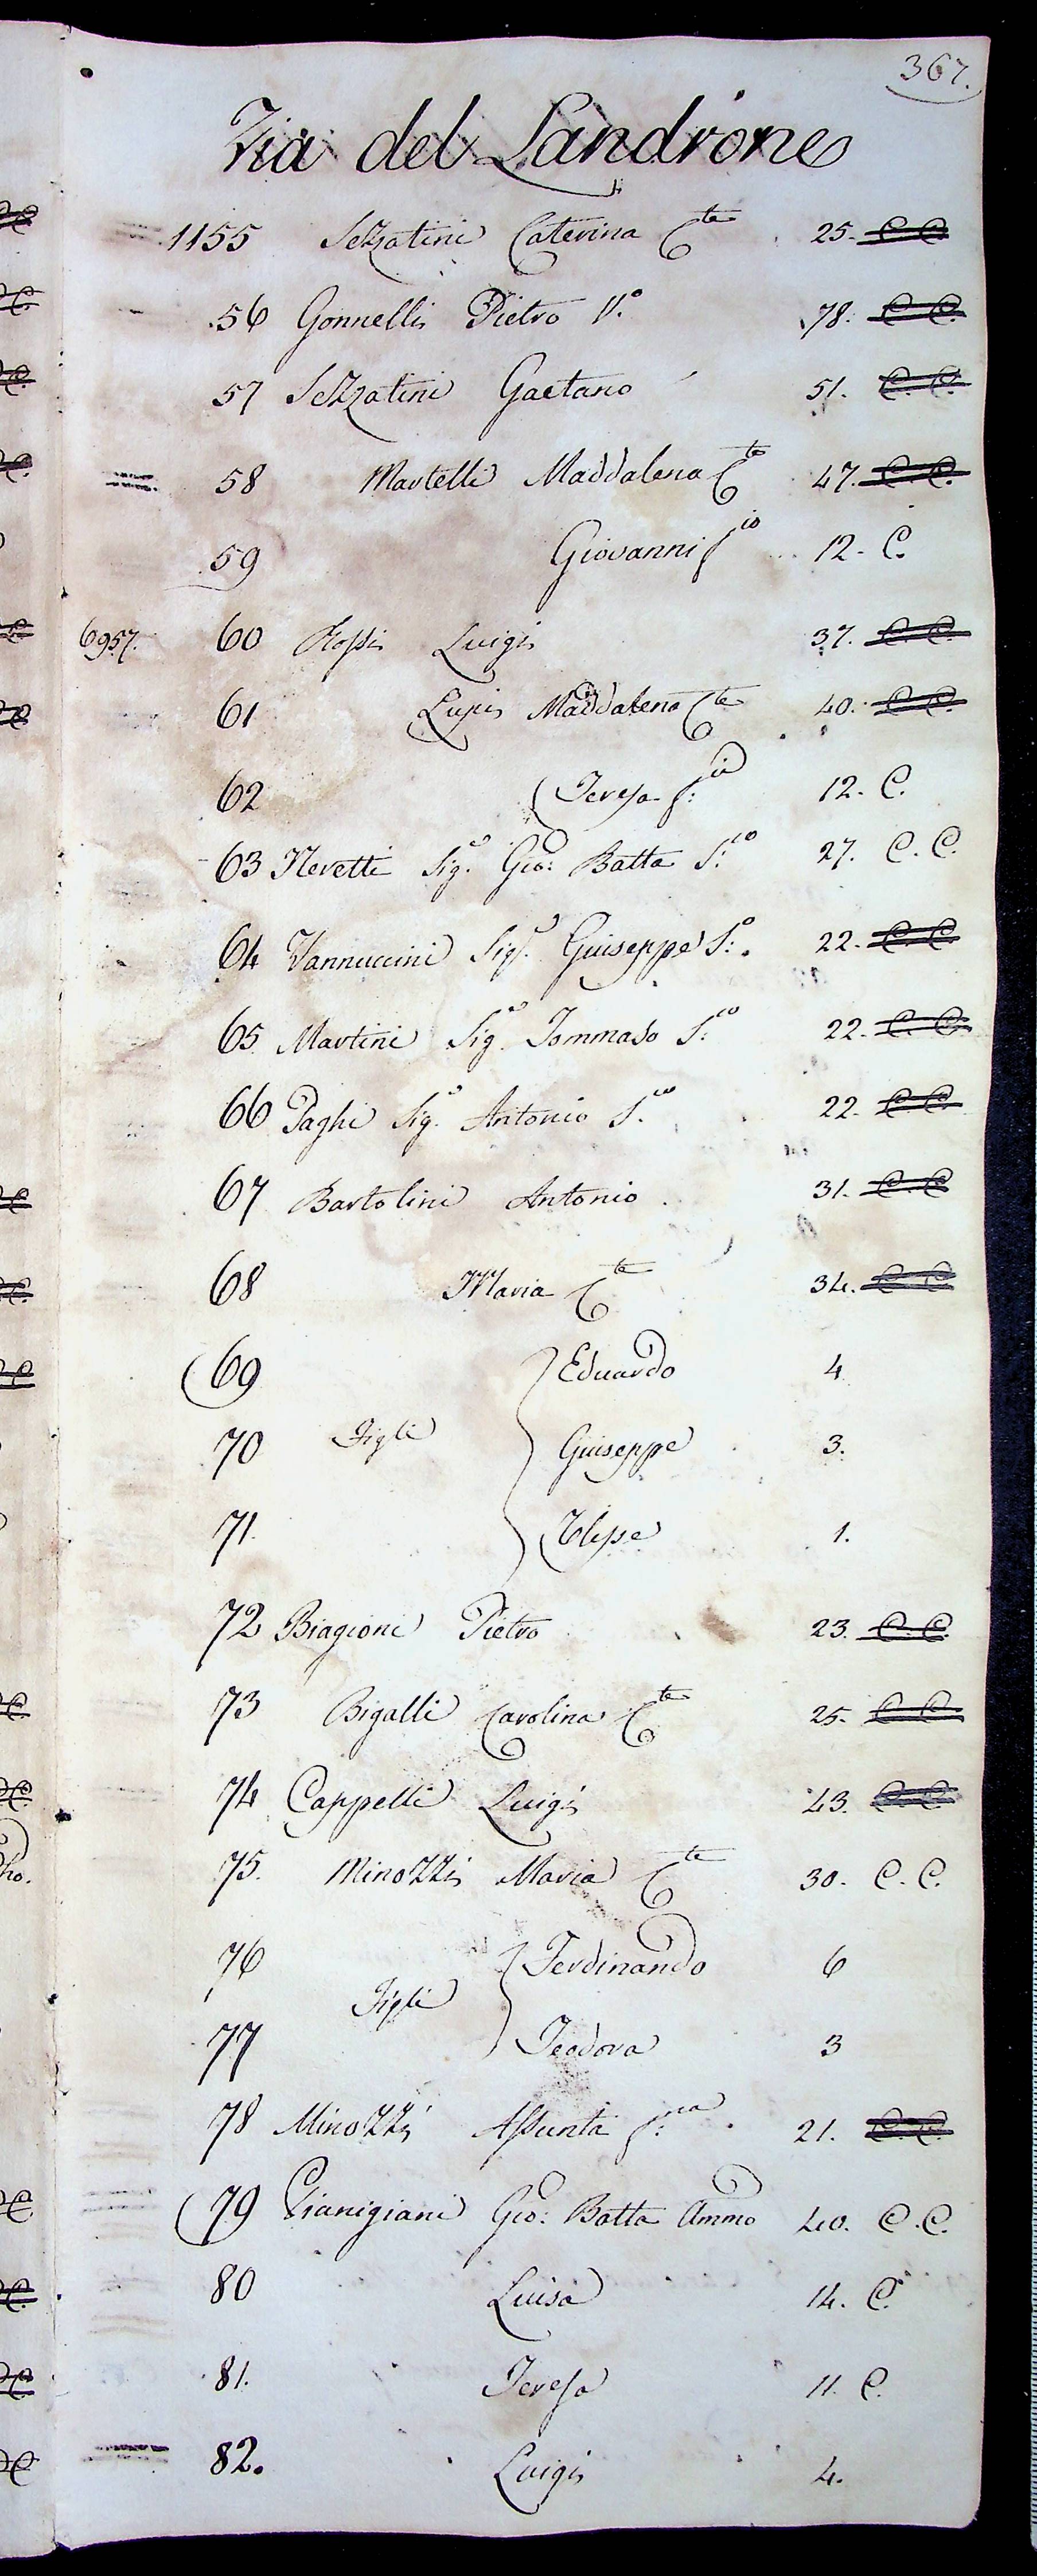 367.
Via del Landrone
1155 Sezzatini Caterina Cte 25. C C
56 Gonnelli Pietro Vo 78. C. C.
57 Sezzatini Gaetano 51. C. C.
58 Martelli Maddalena Cte 47. C. C.
59 Giovanni fio 12. C.
6957. 60 Rossi Luigi 37. C. C.
61 Lupi Maddalena Cte 40. C. C.
62 Teresa f:ia 12. C.
63 Neretti Sig.e Gio: Batta S:co 27. C. C.
64 Vannuccini Sig.e Guiseppe S:o 22. C. C.
65 Martini Sig.e Tommaso S:co 22. C. C.
66 Paghi Sig.e Antonio S.co 22. C. C.
67 Bartolini Antonio 31. C. C
68 Maria Cte 34. C C
69 Eduardo 4
70 Figli Guiseppe 3.
71. Ulisse 1.
72 Biagioni Pietro 23. C. C.
73 Bigalli Carolina Cte 25. C C.
74 Cappelli Luigi 43. C. C.
75. Minozzi Maria Cte 30. C. C.
76 Ferdinando 6
Figli
77 Teodora 3
78 Minozzi Assunta f:na 21. C. C.
79 Gianigiani Gio: Batta Ammo 40. C. C.
80 Luisa 14. C.
81. Teresa 11. C.
82. Luigi 4.